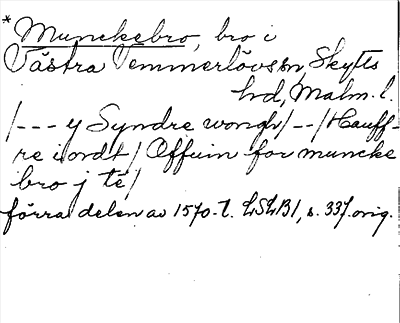 * Munckebro, bro i
Västra Vemmerlövs sn, Skytts
hd, Malm. l.
/--- y Syndre wongh/--/Hauff-
re i ordt/ Offuin for muncke
bro j te/
förra delen av 1570-t. LSLB1, s. 337. orig.